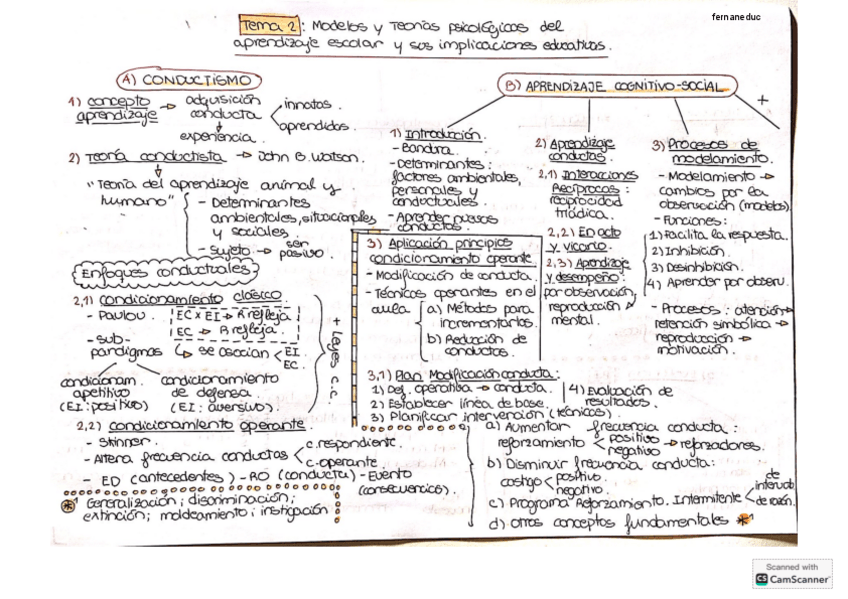 fernaneduc
Tema 2: Modelos y Teorías psicológicas del
aprendizaje escolar y sus implicaciones educativas.
A) CONDUCTISMO
1) concepto aprendizaje → adquisición conducta
innatos.
aprendidos.
experiencia.
2) Teoría conductista → John B. Watson.
"Teoría del aprendizaje animal y
humano"
- Determinantes
ambientales, situacionales
y sociales.
- Sujeto → ser
pasivo.
Enfoques conductuales
2,1) condicionamiento clásico.
- Paulov.
EC x EI → R refleja
EC → R refleja.
- sub-
paradigmas
se asocian
EI.
EC.
+ Leyes C.C.
condicionam.
apetitivo
(EI: positivo)
condicionamiento
de defensa
(EI: aversivo).
2,2) condicionamiento operante.
- Skinner.
- Altera frecuencia conductas
c.respondiente.
c.operante
- ED (antecedentes) - RO (conducta) - Evento
(consecuencias)
*1 Generalización; discriminación;
extinción; moldeamiento; instigación
3) Aplicación principios
condicionamiento operante
- Modificación de conducta.
- Técnicas operantes en el
aula
a) Métodos para
incrementarlos.
b) Reducción de
conductos.
3,1) Plan Modificación conducta:
1) Def. operativa → conducta.
2) Establecer línea de base.
3) Planificar intervención (técnicas).
4) Evaluación de
resultados.
a) Aumentar frecuencia conducta:
reforzamiento
positivo
negativo
→ reforzadores.
b) Disminuir frecuencia conducta:
castigo
positivo.
negativo.
c) Programa Reforzamiento. Intermitente
de
intervalo
de razón.
d) otros conceptos fundamentales *1
B) APRENDIZAJE COGNITIVO-SOCIAL
+
1) Introducción.
- Bandura.
- Determinantes:
factores ambientales,
personales y
conductuales.
- Aprender nuevas
conductas.
2) Aprendizaje
conductas.
2,1) Interacciones
Recíprocas:
reciprocidad
triádica.
2,2) En acto
y vicario.
2,3) Aprendizaje
y desempeño:
por observación,
reproducción
mental.
3) Procesos de
modelamiento.
- Modelamiento →
cambios por la
observación (modelos).
- Funciones:
1) Facilita la respuesta.
2) Inhibición.
3) Desinhibición.
4) Aprender por observ.
- Procesos: atención →
retención simbólica →
reproducción →
motivación.
Scanned with
CS CamScanner